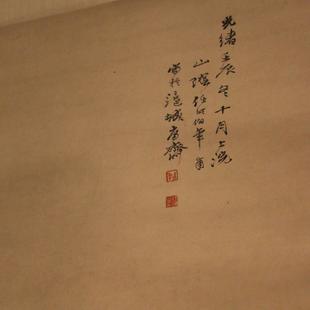 光緒壬辰冬十月上浣
山陰任伯年寫
於滬城寄齋